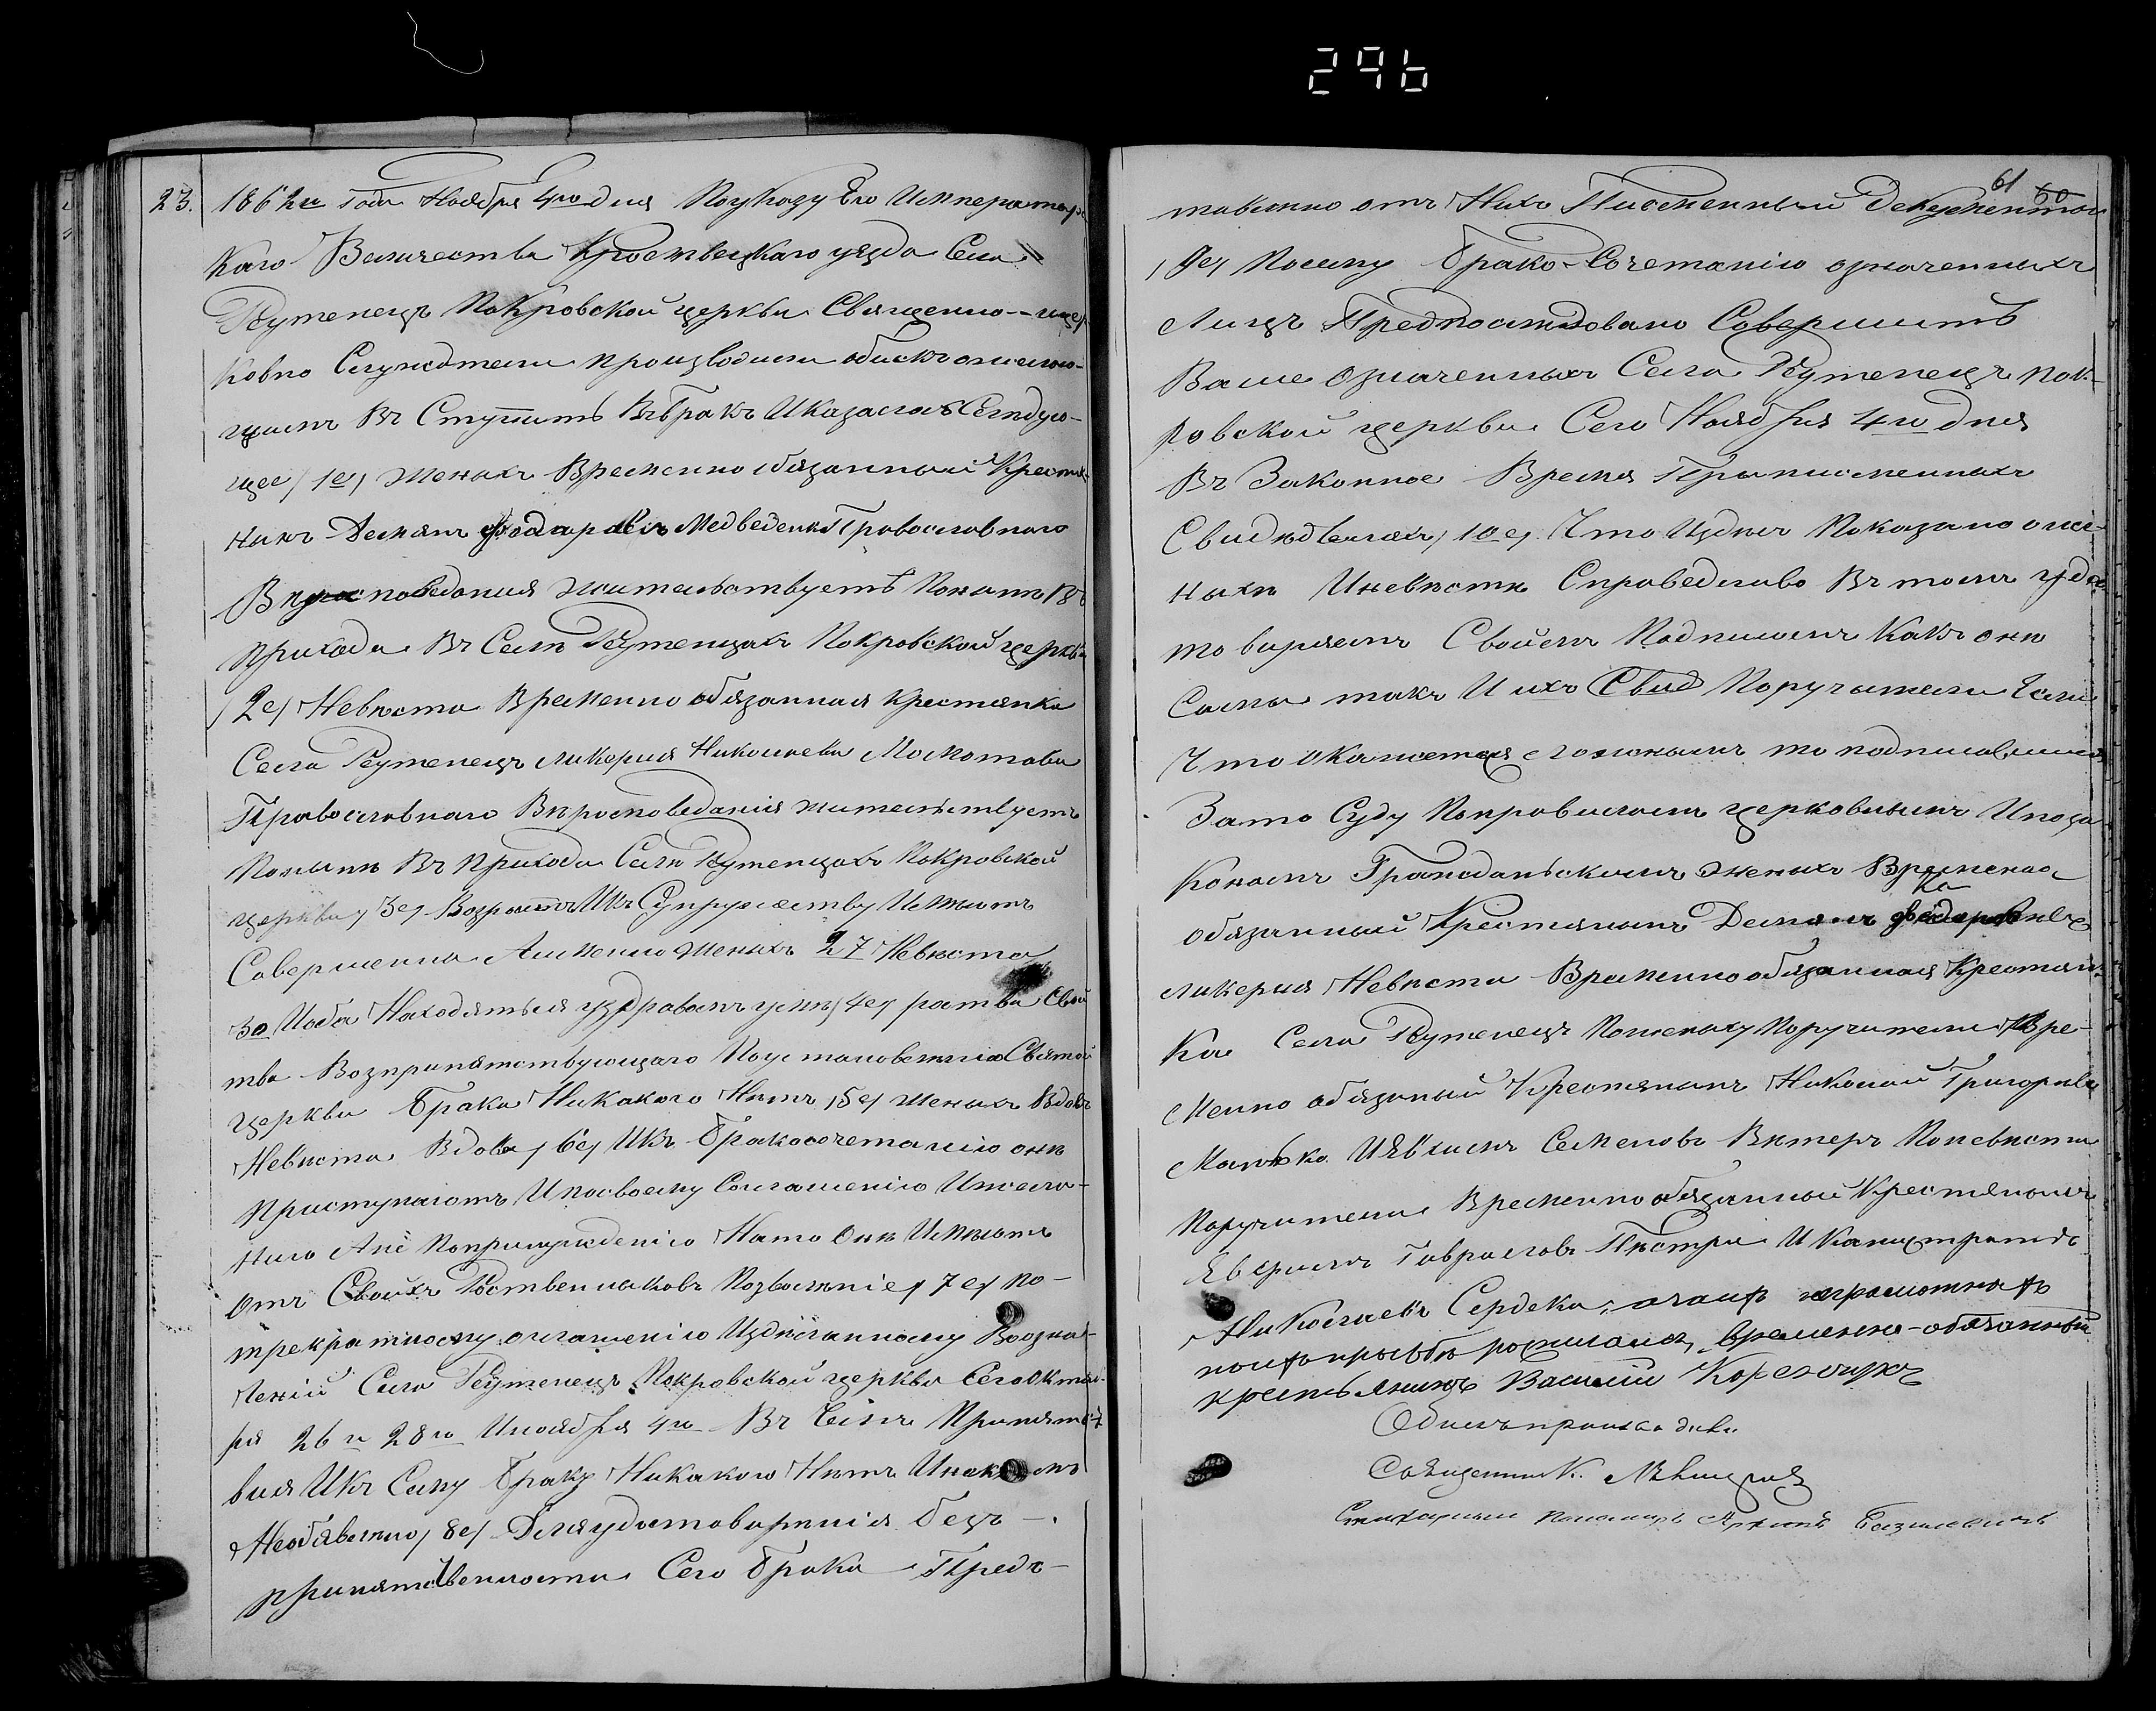 296
61 60
23. 186 2го Года Ноября 4го дня Поуказу Его Императорс
каго Величества Кролевецкаго уезда Села
Реутенецъ Покровской церкви Священно-цер
ковно Служители производили обыскъ ожелаю-
щимъ Въ Ступить Въбракъ Иказалось Следую-
щее, 1е, Женихъ Временно обязанный Крестя
нинъ Демянъ Федоровъ Медведенко Православнаго
Вероисповедания жительствуетъ Понынѣ Въ
приходе Въ Селѣ Реутенцахъ Покровской церкви
2е, Невѣста Временно обязанная крестянка
Села Реутенецъ Ликерия Николаева Москотова
Православнаго Вѣроисповеданія жительствуетъ
Понынѣ Въ Приходе Селѣ Реутенцахъ Покровской
церкви, 3е, Возрастъ Икъ Супружеству Имѣютъ
Совершенна Аименно Женихъ 27 Невѣста
30 Иоба Находяться уздравомъ умѣ, 4е, раства Свой
тва Возпрепятствующаго Поустановлению Святой
церкви брака Никакого Нѣтъ, 5е, Женихъ Вдовъ
Невѣста Вдова, 6е, Икъ бракосочетанію онѣ
приступаютъ Посвоему Согласению Ижела-
нию Ане Попринуждению Нато Онѣ Имѣютъ
Отъ Своихъ Роственниковъ Позволѣние, 7е, По-
трекратному оглашенію Издѣланному Воозна-
ченій Села Реутенецъ Покровской церкви Сего Октяб
ря 26го 28го Иноября 4го Въ Чемъ Препятст
вия Икъ Сему браку Никакого Нѣтъ Иникемъ
Необявлено, 8е, Дляудостоверѣния безъ -
препятственности Сего брака Пред-
тавлено отъ Нихъ Писменный Декументъ
9е, Посему брако-Сочетанію означенныхъ
Лицъ Предпоставлено Совершитъ
Ваше означенныхъ Села Реутенецъ Пок-
ровской церкви Сего Ноября 4го дня
Въ Законное Время Приписменныхъ
Свидѣтеляхъ, 10е, Что Издѣсь Показано оже-
нихѣ Иневѣстѣ Справедливо Въ томъ удос
товеряемъ Своемъ Подписомъ Какъ онѣ
Самы такъ И ихъ Свид Поручытели Если
Что окажется ложнымъ то подписавшиеся
Зато Суду Поправиламъ церковнымъ Ипоза
конамъ Гражданскимъ Женихъ Временно
обязанный Крестянынъ Демянъ Федоровъ Медведенко
Ликерия Невѣста Временно обязанная Крестян
ка Села Реутенецъ Пожениху Поручители Вре-
менно обязаный Крестянынъ Николай Григориев
Семеновъ Поневѣсте
Поручители Временно обязанный Крестянынъ
Гавриловъ Пѣстри И
Николаевъ Сердека, неграмотнаго
попрозбѣ росписался, временно-обязанный
крестьянинъ Василій
Обыскъ производили
Священникъ
Пономарь Базилевичъ